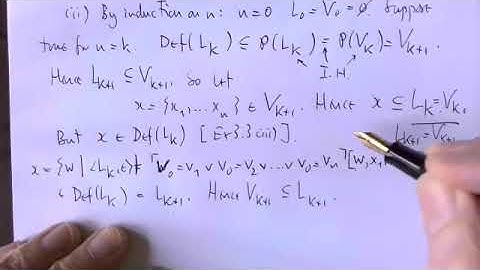 (ii) By induction on n: n=0 L₀ = V₀ = ∅. Suppose
true for n=k. Def(L_k) ⊆ P(L_k) = P(V_k) = V_{k+1}.
I.H.
Hence L_{k+1} ⊆ V_{k+1}. So let
x = {x₁, ... x_n} ∈ V_{k+1}. Hence x ⊆ L_k = V_k.
But x ∈ Def(L_k) [Ex 3.3 (iii)]. L_{k+1} = V_{k+1}
x = {w | ⟨L_k, ∈⟩ ⊨ ⌜v₀ = v₁ ∨ v₀ = v₂ ∨ ... ∨ v₀ = v_n⌝ [w, x₁,
∈ Def(L_k) = L_{k+1}. Hence V_{k+1} ⊆ L_{k+1}.